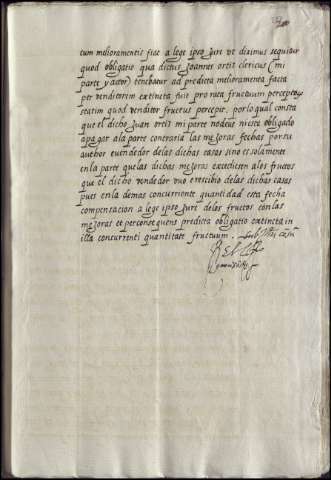 tum melioramentis fide a lege ipso jure ut diximus sequitur
quod obligatio qua dictus Joannes ortis clericus (mi
parte y autor) tenebatur ad predicta melioramenta facta
per venditorem extincta fuit pro rata fructuum perceptorum
statim quod venditor fructus percepit. por lo qual consta
que el dicho Juan ortis mi parte no deue ni esta obligado
a pagar a la parte contraria las mejoras fechas por su
author e uendedor de las dichas casas sino es solamente
en la parte que las dichas mejoras excedieren a los fructos
que el dicho vendedor vuo e recibio de las dichas casas
pues en la demas concurrente quantidad esta fecha
compensacion a lege ipso jure de los fructos con las
mejoras et per consequens predicta obligatio extincta in
illa concurrenti quantitate fructuum.
El